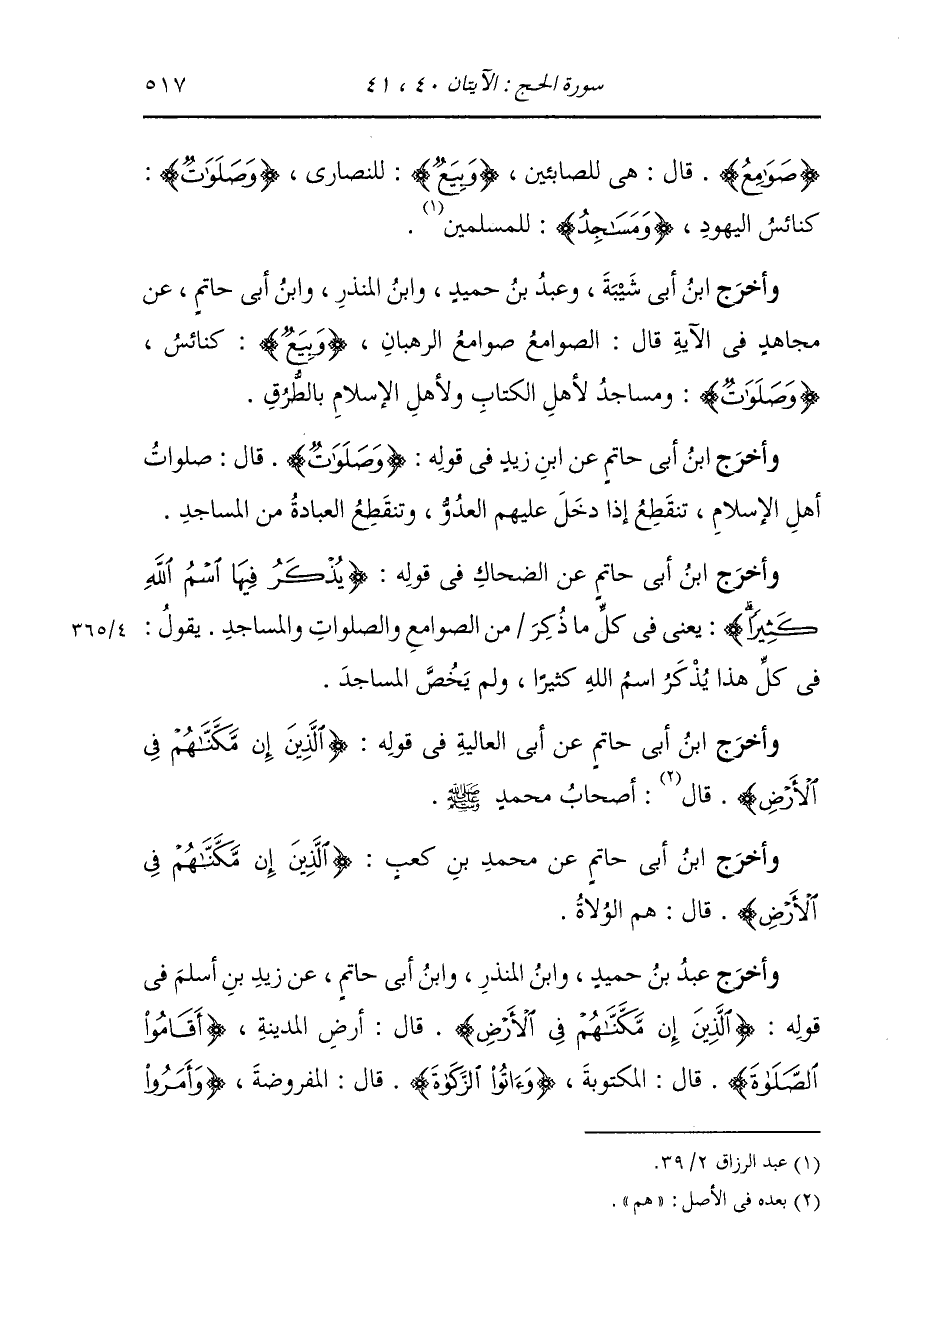 سورة الحج : الآيتان ٤٠ ، ٤١ ٥١٧
﴿صَوَٰمِعُ﴾ . قال : هى للصابئين ، ﴿وَبِيَعٌ﴾ : للنصارى ، ﴿وَصَلَوَٰتٌ﴾ :
كنائسُ اليهودِ ، ﴿وَمَسَٰجِدُ﴾ : للمسلمين(١) .
وأخرَج ابنُ أبى شَيْبَةَ ، وعبدُ بنُ حميدٍ ، وابنُ المنذرِ ، وابنُ أبى حاتمٍ ، عن
مجاهدٍ فى الآيةِ قال : الصوامعُ صوامعُ الرهبانِ ، ﴿وَبِيَعٌ﴾ : كنائسُ ،
﴿وَصَلَوَٰتٌ﴾ : ومساجدُ لأهلِ الكتابِ ولأهلِ الإسلامِ بالطُّرُقِ .
وأخرَج ابنُ أبى حاتمٍ عن ابنِ زيدٍ فى قولِه : ﴿وَصَلَوَٰتٌ﴾ . قال : صلواتُ
أهلِ الإسلامِ ، تنقَطِعُ إذا دخَلَ عليهم العدُوُّ ، وتنقَطِعُ العبادةُ من المساجدِ .
وأخرَج ابنُ أبى حاتمٍ عن الضحاكِ فى قولِه : ﴿يُذْكَرُ فِيهَا ٱسْمُ ٱللَّهِ
كَثِيرًاۗ﴾ : يعنى فى كلِّ ما ذُكِرَ / من الصوامعِ والصلواتِ والمساجدِ . يقولُ : ٣٦٥/٤
فى كلِّ هذا يُذْكَرُ اسمُ اللهِ كثيرًا ، ولم يَخُصَّ المساجدَ .
وأخرَج ابنُ أبى حاتمٍ عن أبى العاليةِ فى قولِه : ﴿ٱلَّذِينَ إِن مَّكَّنَّٰهُمْ فِى
ٱلْأَرْضِ﴾ . قال(٢) : أصحابُ محمدٍ ﷺ .
وأخرَج ابنُ أبى حاتمٍ عن محمدِ بنِ كعبٍ : ﴿ٱلَّذِينَ إِن مَّكَّنَّٰهُمْ فِى
ٱلْأَرْضِ﴾ . قال : هم الوُلاةُ .
وأخرَج عبدُ بنُ حميدٍ ، وابنُ المنذرِ ، وابنُ أبى حاتمٍ ، عن زيدِ بنِ أسلمَ فى
قولِه : ﴿ٱلَّذِينَ إِن مَّكَّنَّٰهُمْ فِى ٱلْأَرْضِ﴾ . قال : أرضِ المدينةِ ، ﴿أَقَامُوا۟
ٱلصَّلَوٰةَ﴾ . قال : المكتوبةَ ، ﴿وَءَاتَوُا۟ ٱلزَّكَوٰةَ﴾ . قال : المفروضةَ ، ﴿وَأَمَرُوا۟
(١) عبد الرزاق ٢/ ٣٩.
(٢) بعده فى الأصل : « هم » .